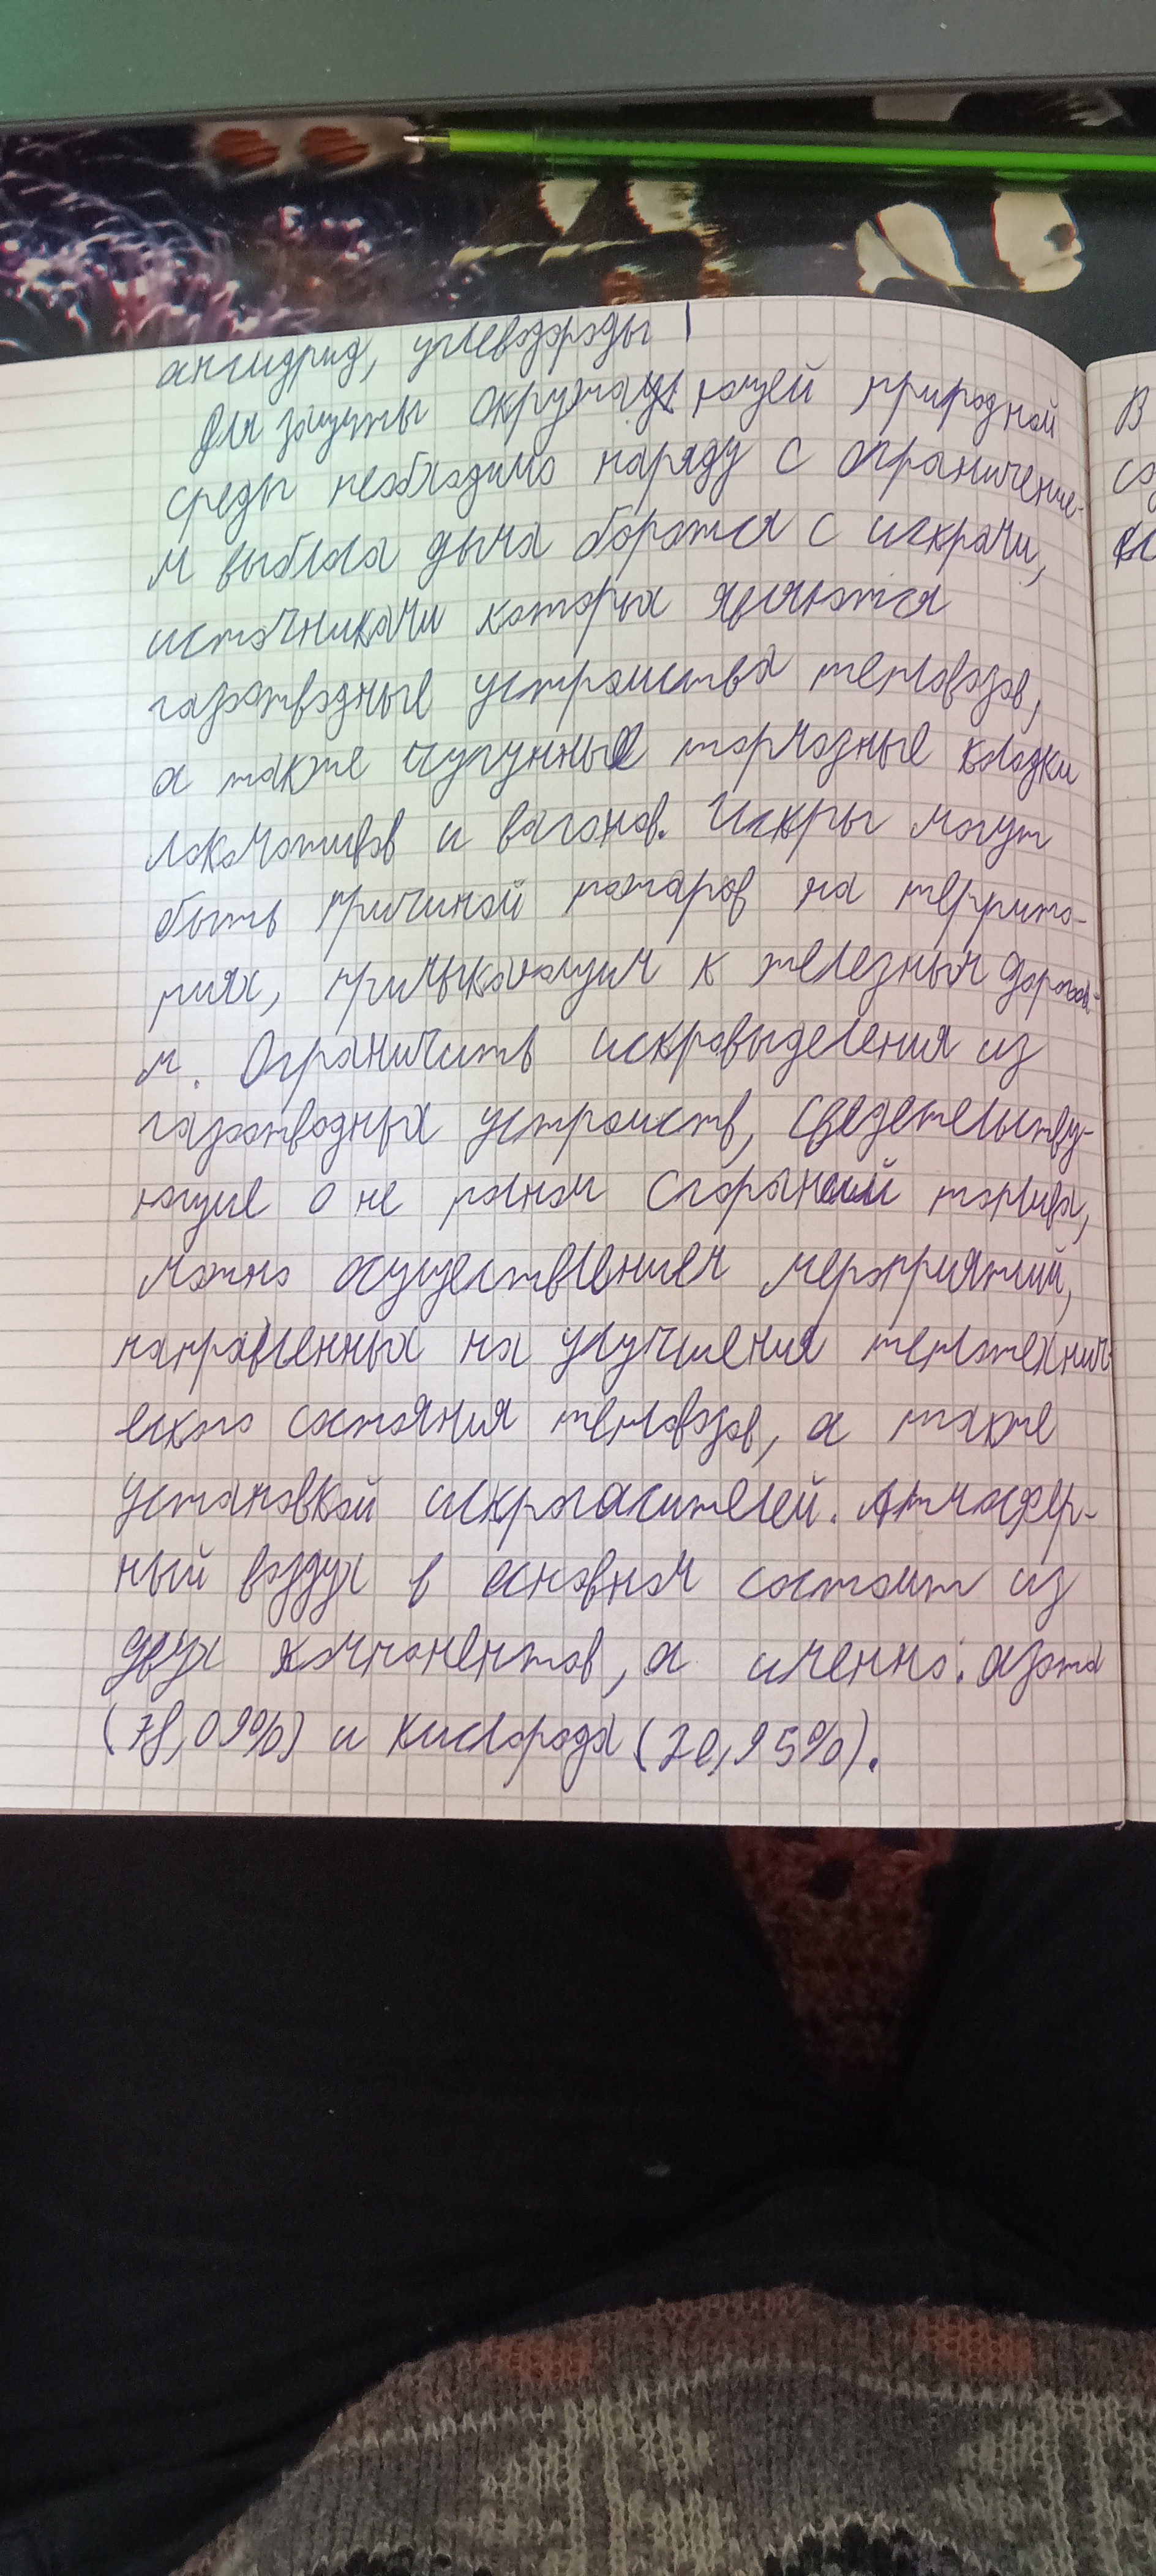 ангидрид, углеводороды
Для защиты окружающей природной
среды необходимо наряду с ограничение-
м выбпоса дыма боротся с искрами,
источниками которых являются
газотводные устроиства тепловозов,
а также чугунные тормозные колодки
локомотивов и вагонов. Искры могут
быть причиной пожаров на террито-
риях, примыкающим к железным дорогая-
м. Ограничить искровыделения из
газотводных устроиств, сведетельству-
ющие о не полном сгорании топлива,
можно осуществлением мероприятий,
направленных на улучшения теплотехнич-
еского состояния тепловозов, а также
установкой искрогасителей. Атмосфер-
ный воздух в основном состоит из
двух компонентов, а именно: азота
(78,09%) и кислорода (20,95%).
В
со